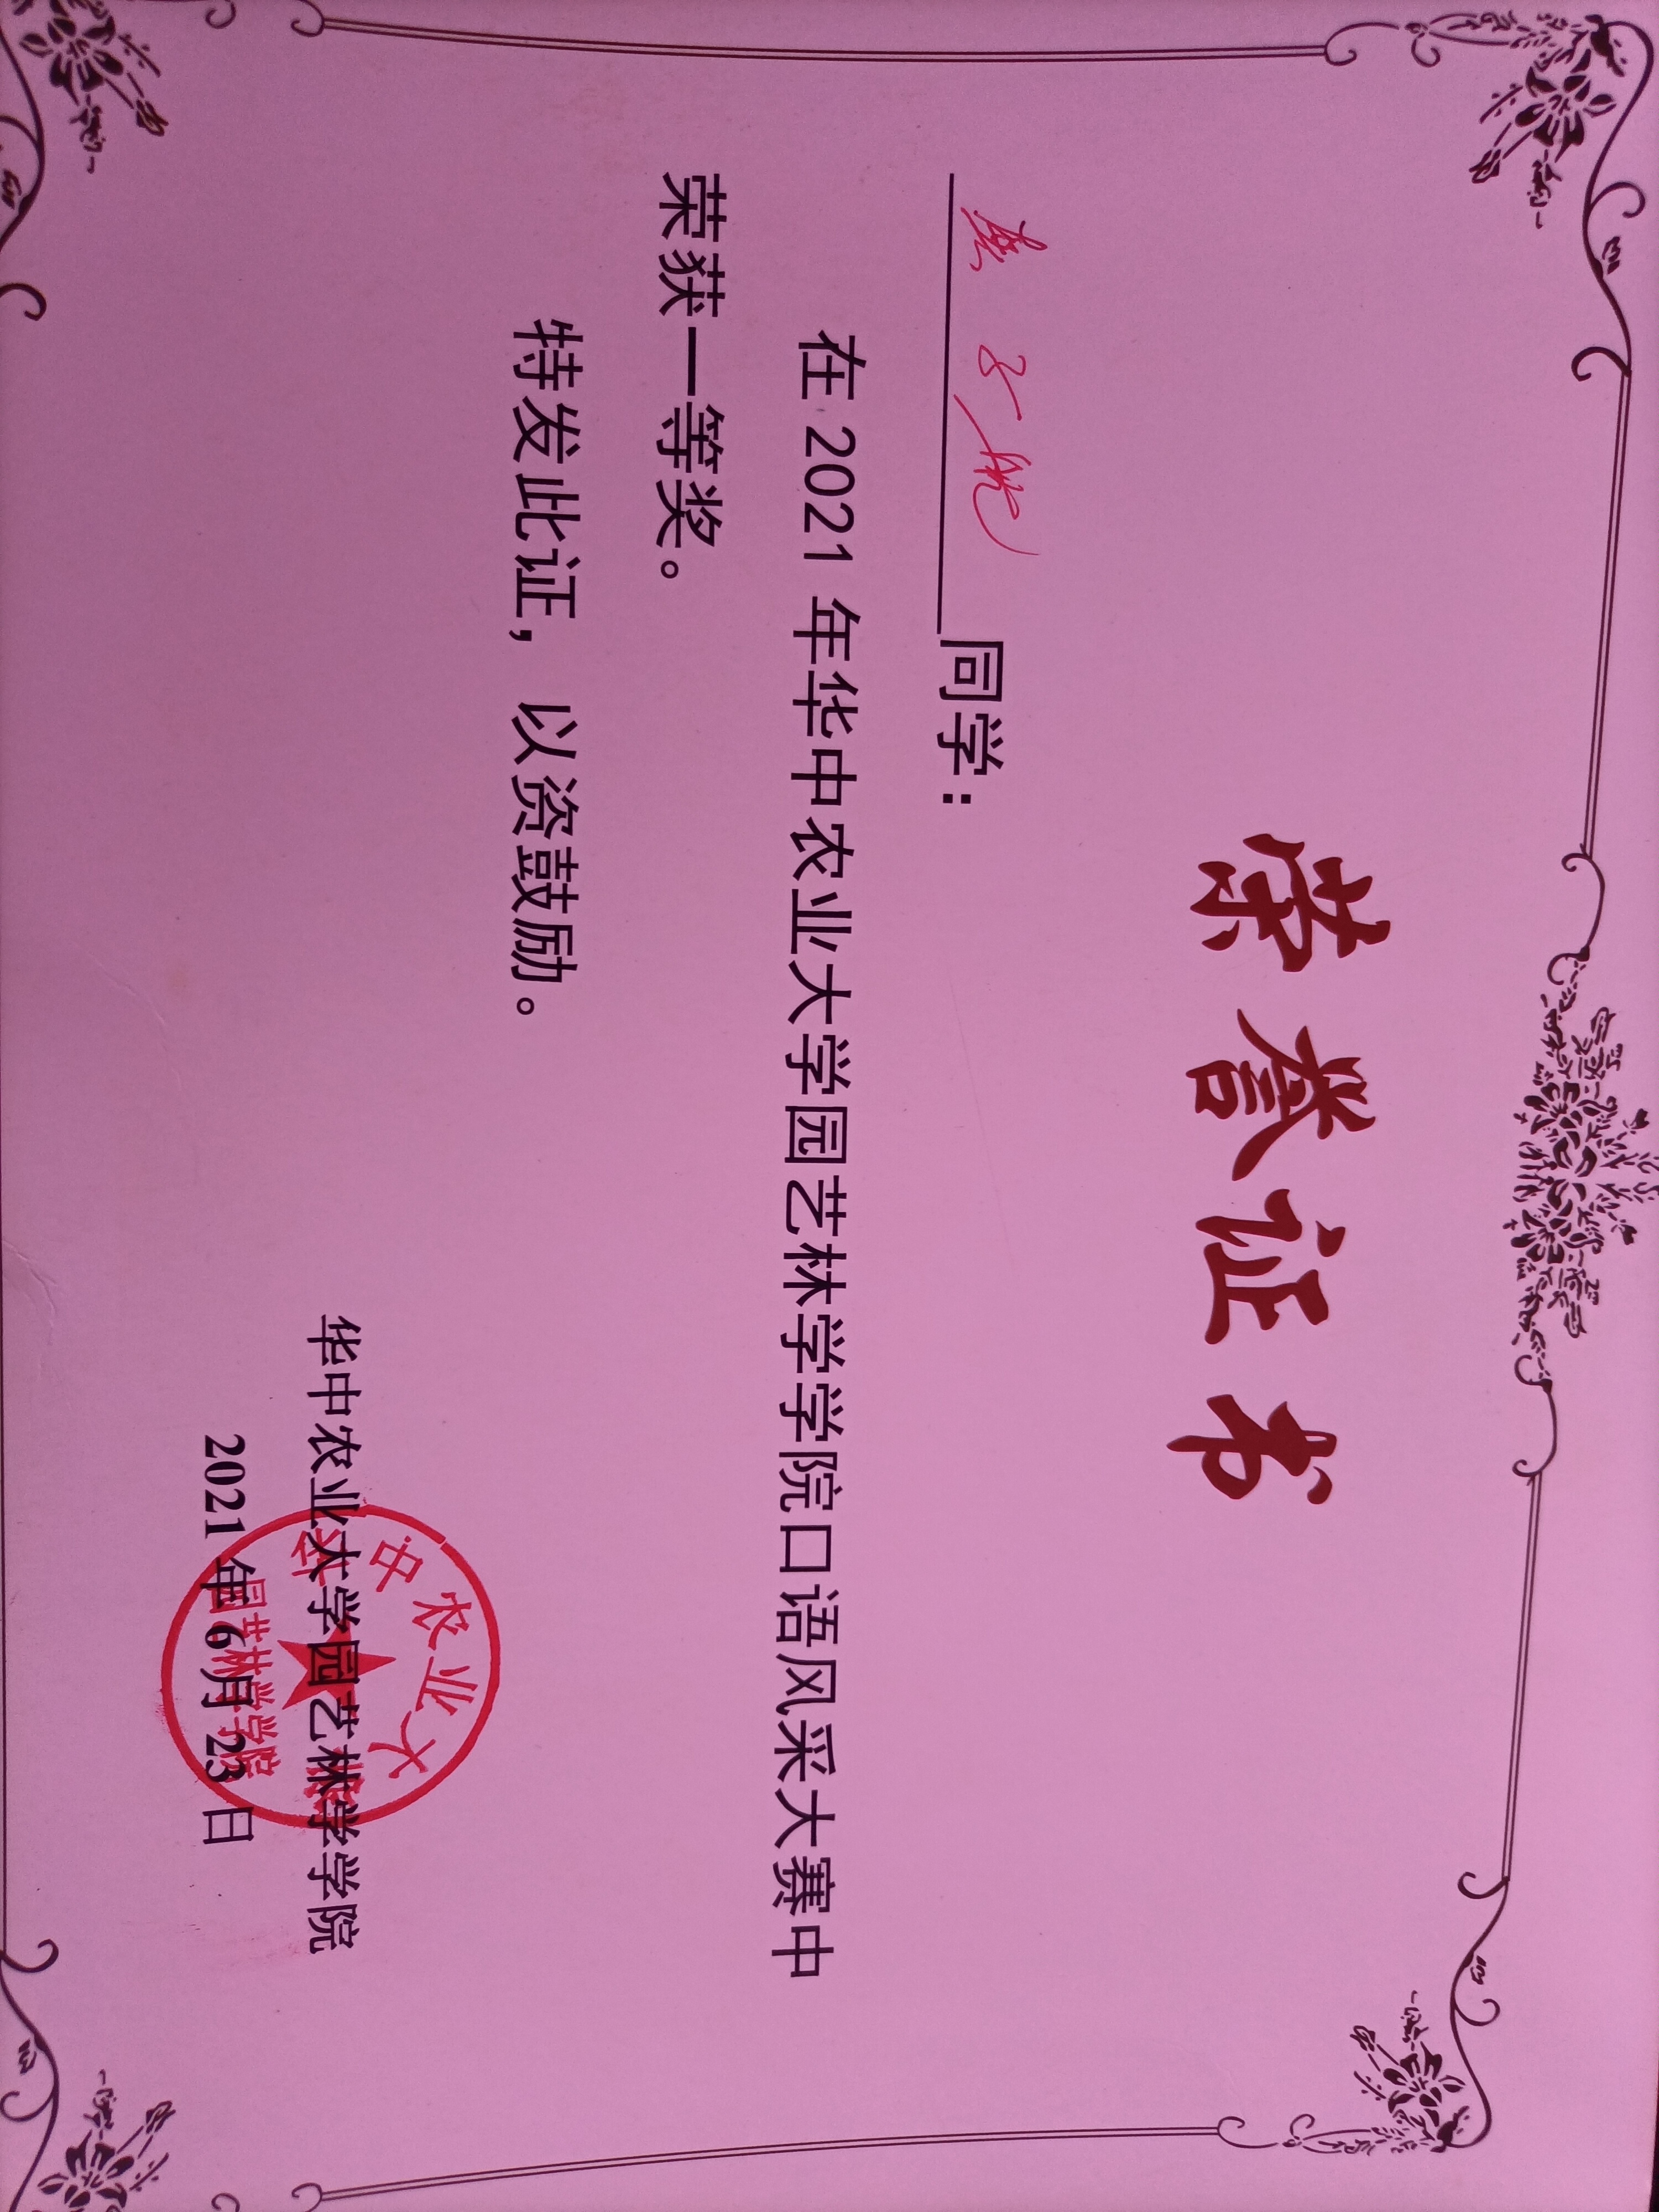 荣誉证书
子航同学：
在 2021 年华中农业大学园艺林学学院口语风采大赛中
荣获一等奖。
特发此证，以资鼓励。
华中农业大学园艺林学学院
2021 年 6 月 23 日
华中农业大学
园艺林学学院